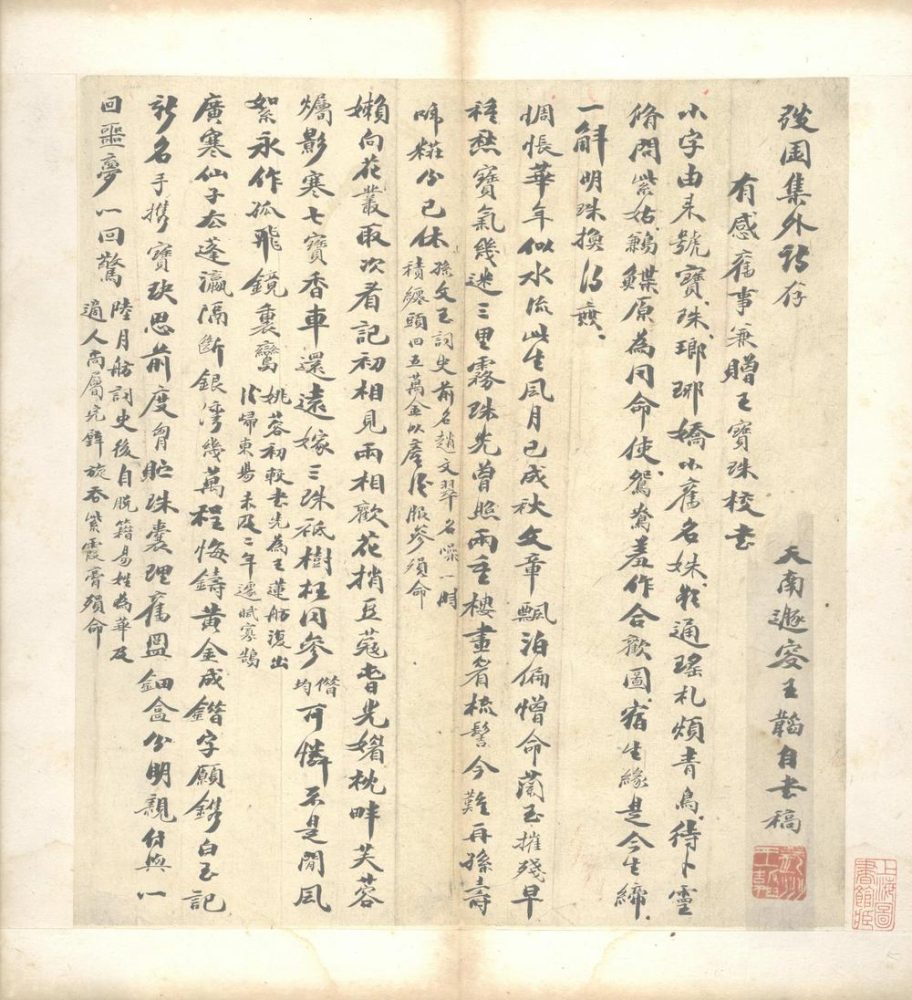 弢園集外詩存
天南遯窟王韜自書稿
有感舊事兼贈王寶珠校書
小字由來號寶珠瑯琊嬌小舊名姝欲通瑤札煩青鳥待卜靈
脩問紫姑鶼鰈原為同命使鴛鴦羞作合歡圖宿生緣是今生締
一斛明珠換得無
惆悵華年似水流此生風月已成秋文章飄泊偏憎命蘭玉摧殘早
種愁寶氣幾迷三里霧珠光曾照兩重樓畫眉梳髻今難再孫壽
啼粧分已休
孫文玉詞史前名趙文翠名噪一時
積纏頭四五萬金以產後服參殞命
嬾向花叢取次看記初相見兩相歡花梢豆蔻春光媚枕畔芙蓉
燭影寒七寶香車還遠嫁三珠祗樹枉同參
借
均
可憐不是閒風
絮永作孤飛鏡裏鸞
姚蓉初較書先為王蓮舫復出
後歸東易未及二年遽賦寡鵠
廣寒仙子在蓬瀛隔斷銀灣幾萬程悔鑄黃金成錯字願鐫白玉記
新名手携寶玦思前度胃貯珠囊理舊盟鈿盒分明親付與一
回噩夢一回驚
陸月舫詞史後自脫籍易姓為華及
適人尚屬完鉾旋吞紫霞膏殞命
上海圖書館臧